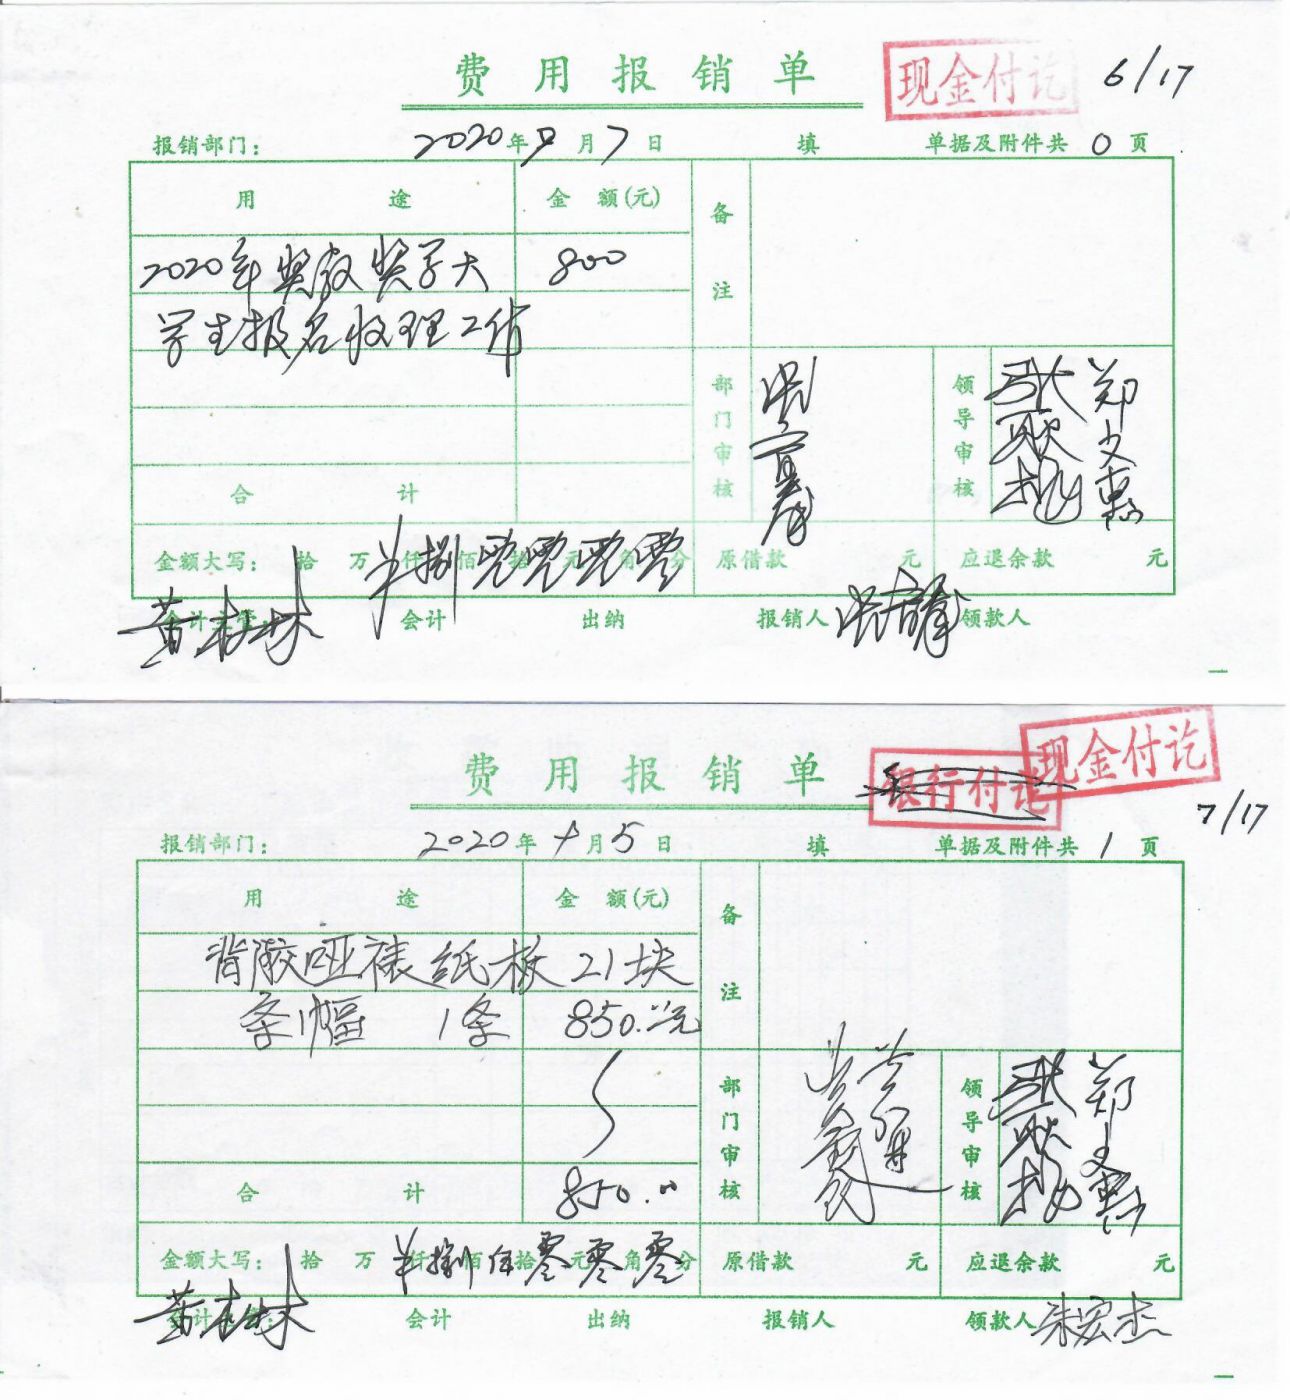 费用报销单
现金付讫
6/17
报销部门： 2020年9月7日 填 单据及附件共0页
用途 金额(元) 备注
2020年奖教奖学大 800
学生报名收理工作
部门审核 领导审核 郑文惠
合计
金额大写： 拾 万 仟捌佰零拾零元零角零分 原借款 元 应退余款 元
会计主管： 黄桂林 会计 出纳 报销人 领款人
费用报销单
银行付讫
现金付讫
7/17
报销部门： 2020年10月5日 填 单据及附件共1页
用途 金额(元) 备注
背胶哑裱纸板21块
条幅 1条 850.00元
部门审核 领导审核 郑文惠
合计 850.00
金额大写： 拾 万 仟捌佰伍拾零元零角零分 原借款 元 应退余款 元
会计主管： 黄桂林 会计 出纳 报销人 领款人 朱宏杰